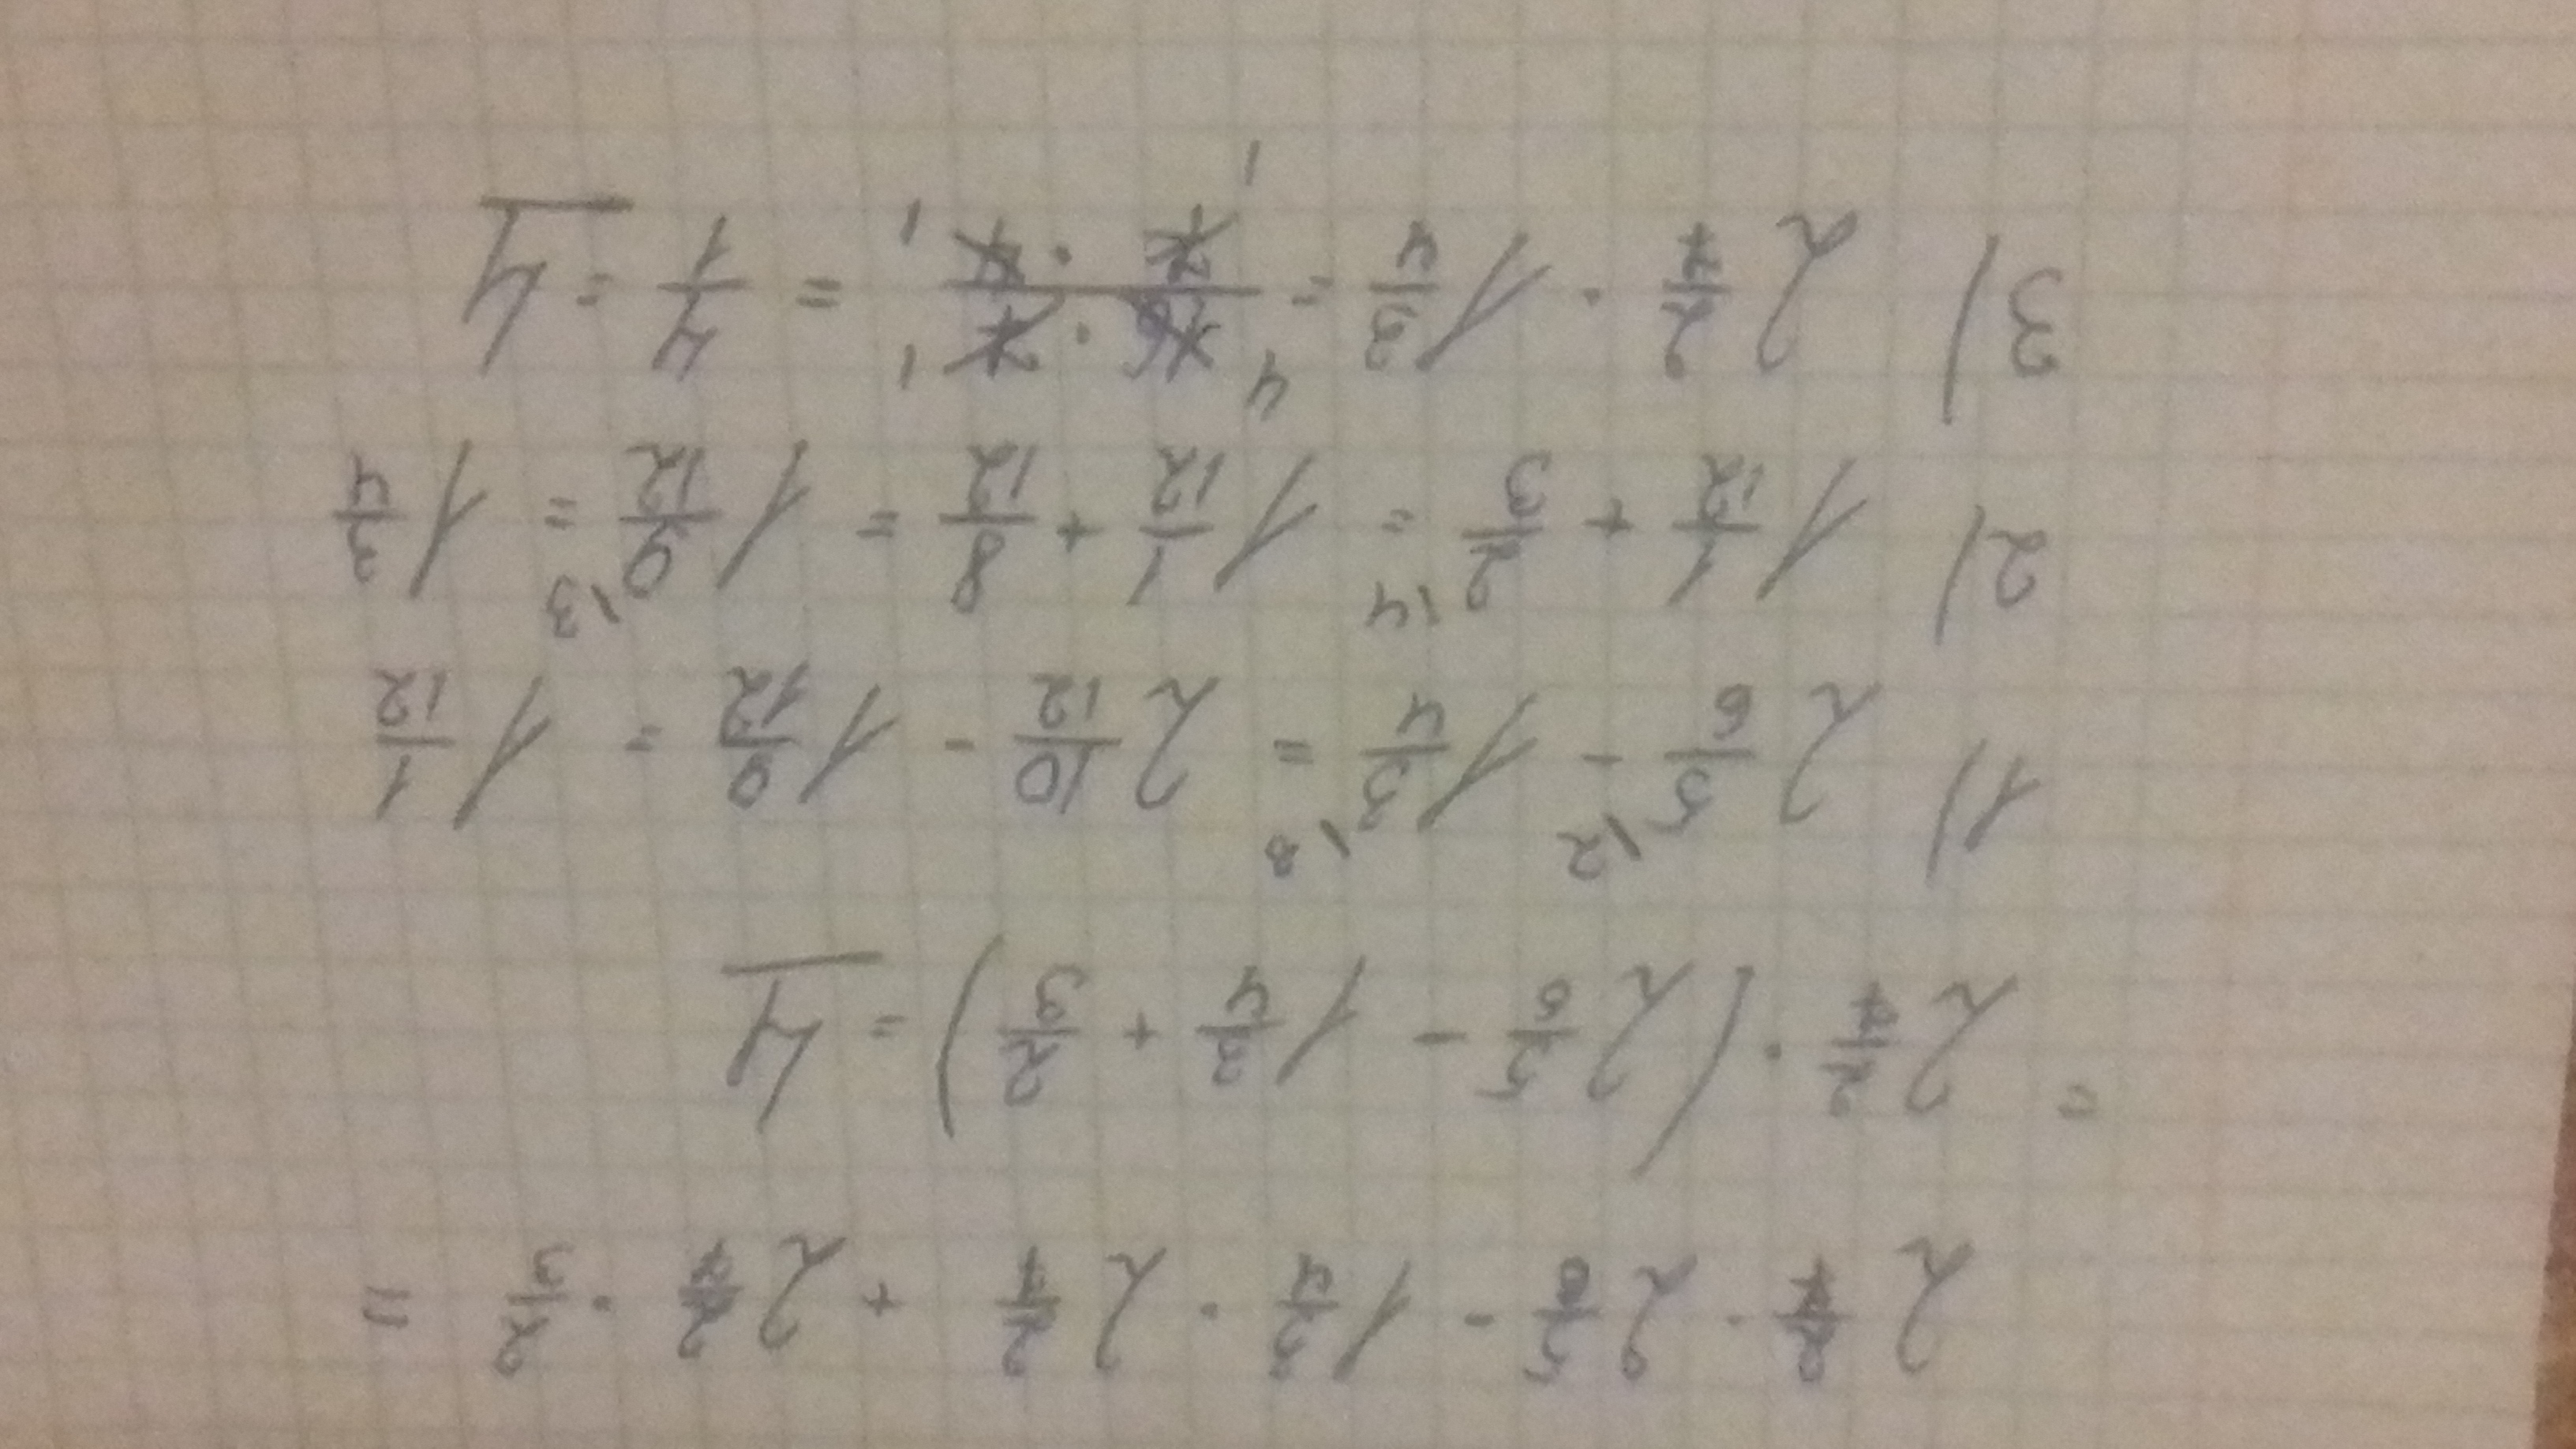 2 2/7 · 2 5/6 - 1 3/4 · 2 2/7 + 2 2/7 · 2/3 =
= 2 2/7 · (2 5/6 - 1 3/4 + 2/3) = 4
1) 2 5/6 \2 - 1 3/4 \3 = 2 10/12 - 1 9/12 = 1 1/12
2) 1 1/12 + 2/3 \4 = 1 1/12 + 8/12 = 1 9/12 \3 = 1 3/4
3) 2 2/7 · 1 3/4 = 16 4 · 7 1 / 7 1 · 4 1 = 4/1 = 4